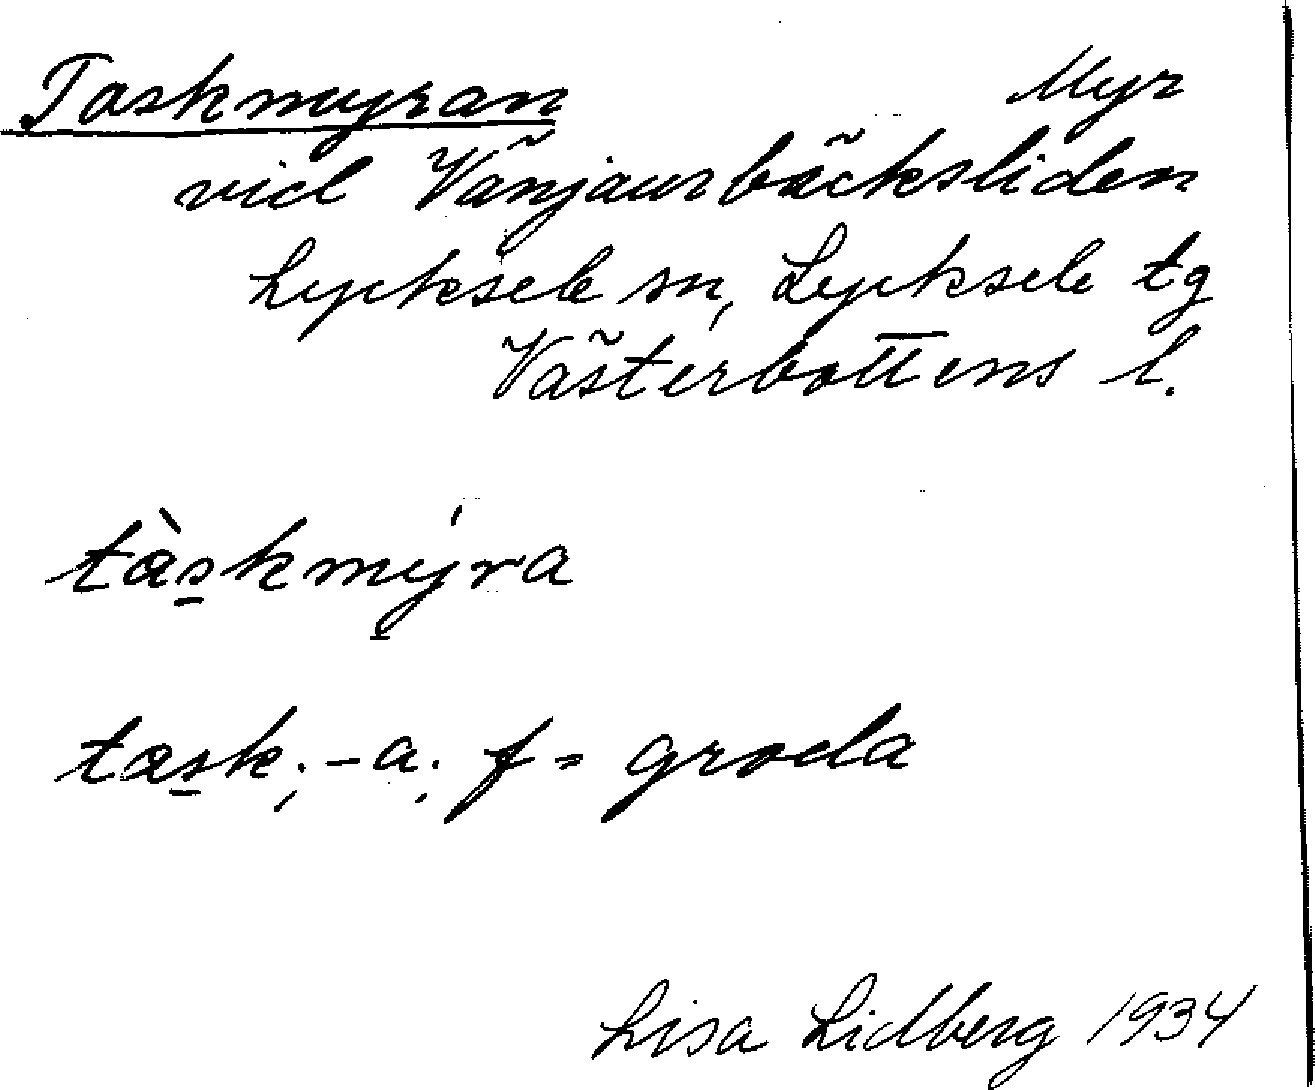 Taskmyran Myr
vid Vänjaurbäcksliden
Lycksele sn, Lycksele tg
Västerbottens l.
tàs̱kmýra
tas̱k; -a; f = groda
Lisa Lidberg 1934